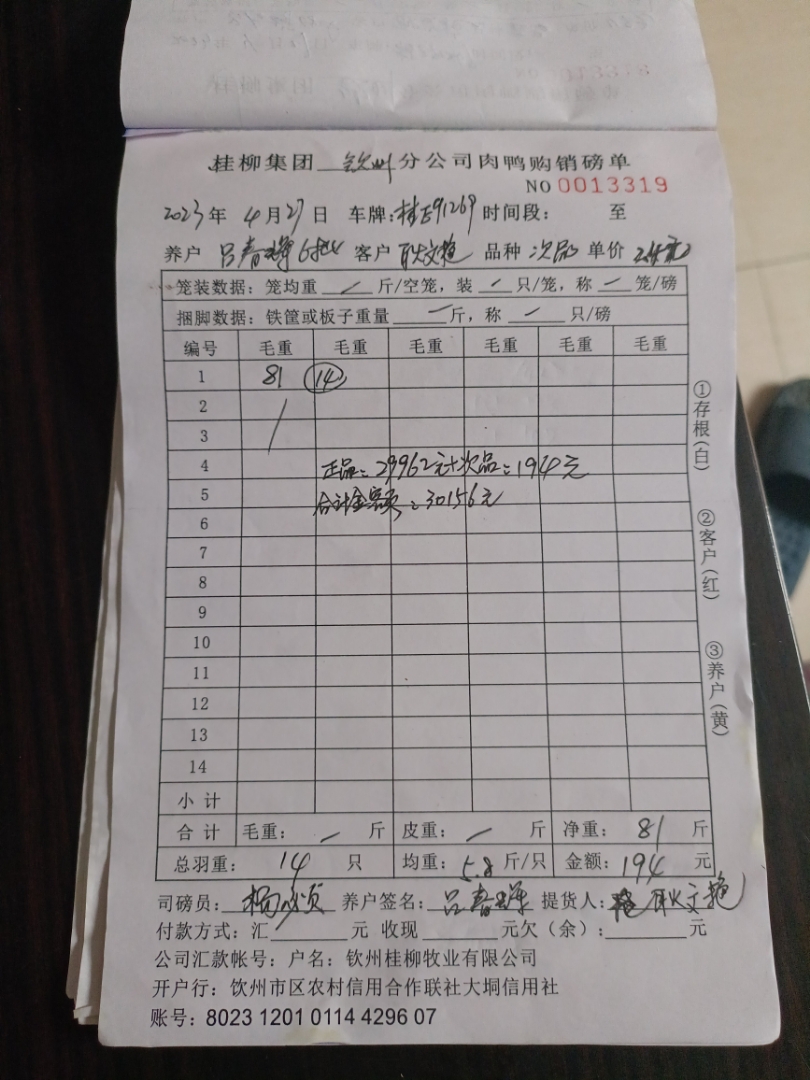 桂柳集团 钦州 分公司肉鸭购销磅单
NO 0013319
2023年 4月27日 车牌:桂E91269 时间段: 至
养户 吕春 客户 耿文艳 品种 次品 单价 2.4元
笼装数据:笼均重 / 斤/空笼,装 / 只/笼,称 / 笼/磅
捆脚数据:铁筐或板子重量 / 斤,称 / 只/磅
编号 毛重 毛重 毛重 毛重 毛重 毛重
1 81 14
2
3
4 正品:29962元+次品:194元
5 合计金额:30156元
6
7
8
9
10
11
12
13
14
小计
合计 毛重: / 斤 皮重: / 斤 净重: 81 斤
总羽重: 14 只 均重: 5.8 斤/只 金额: 194 元
司磅员: 杨 养户签名: 吕春 提货人: 耿文艳
付款方式:汇 元 收现 元欠(余): 元
公司汇款帐号:户名:钦州桂柳牧业有限公司
开户行:饮州市区农村信用合作联社大垌信用社
账号:8023 1201 0114 4296 07
①存根(白)
②客户(红)
③养户(黄)